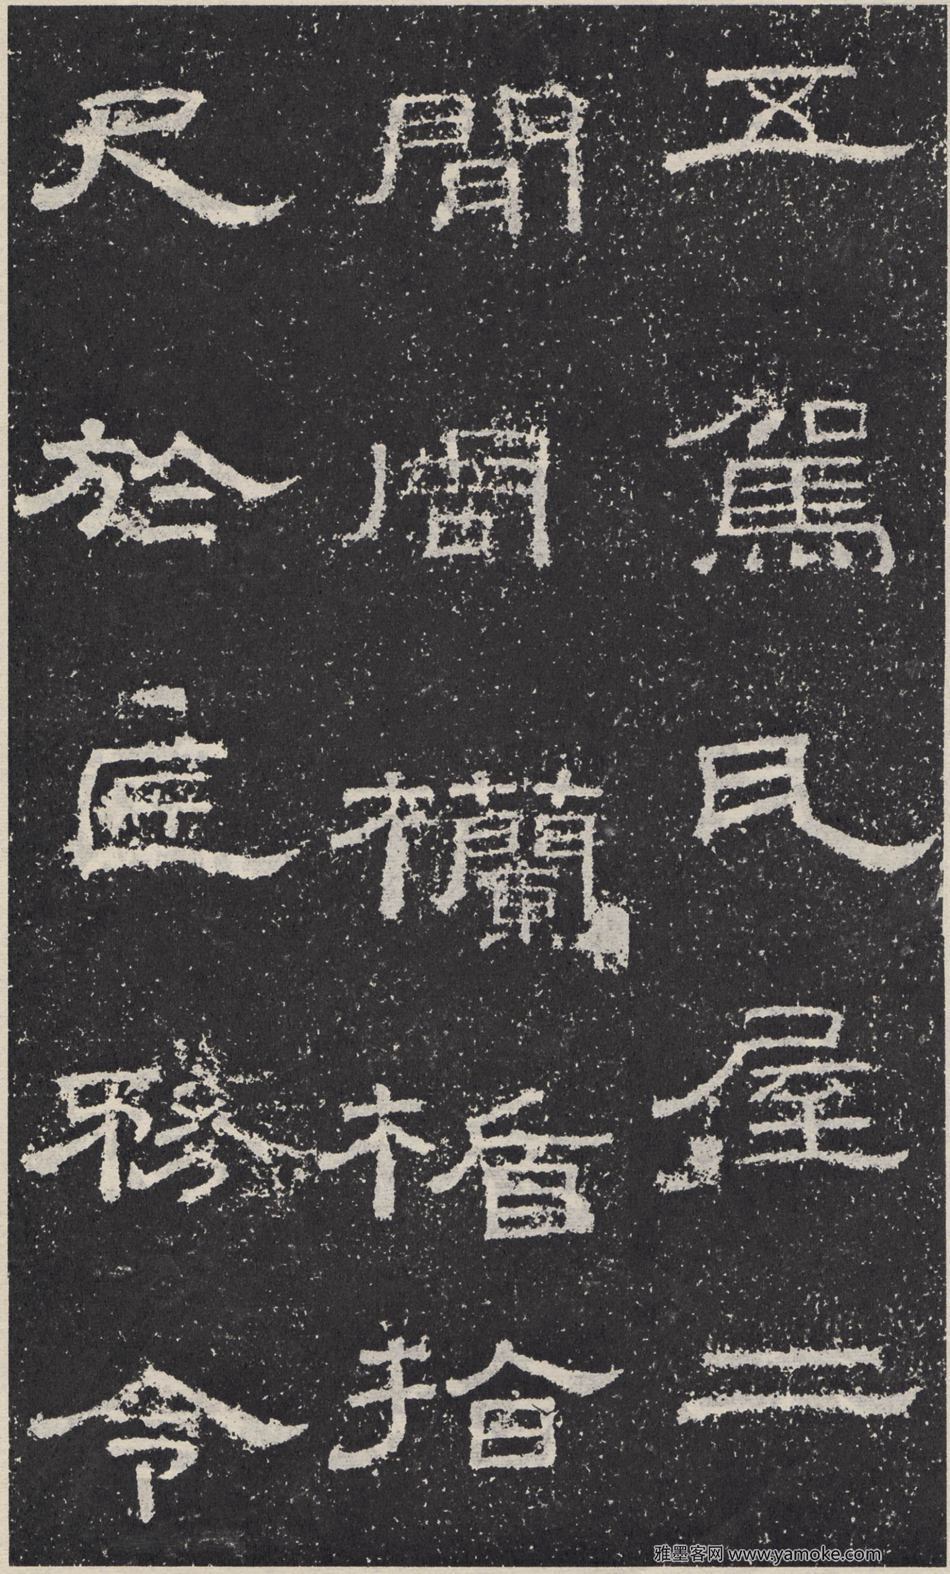 五駕瓦屋二
間周欗楯拾
尺於匠務令
雅墨客网 www.yamoke.com